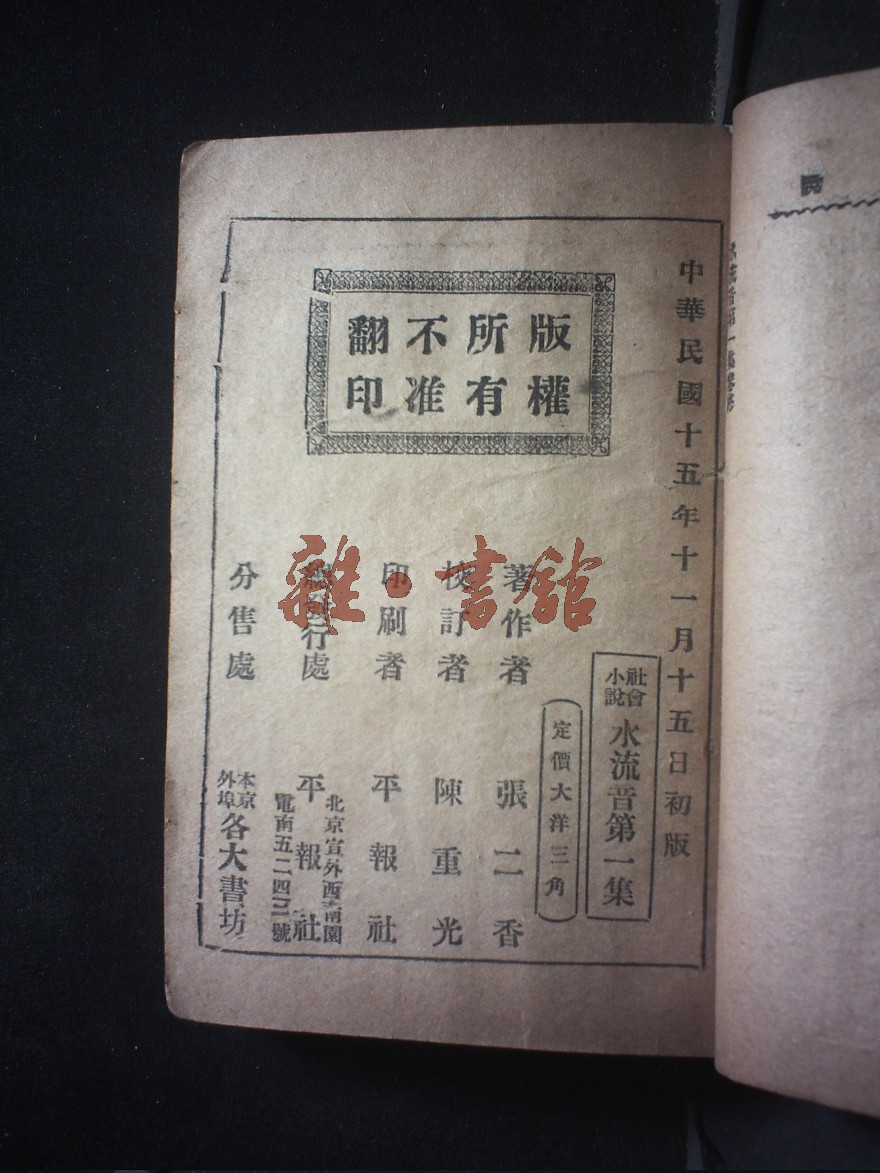 中華民國十五年十一月十五日初版
版權
所有
不准
翻印
社會
小說
水流音第一集
定價大洋三角
著作者 張二香
校訂者 陳重光
印刷者 平報社
總發行處 平報社
北京宣外西南園
電南五二四二號
分售處
本京
外埠
各大書坊
雜·書舘